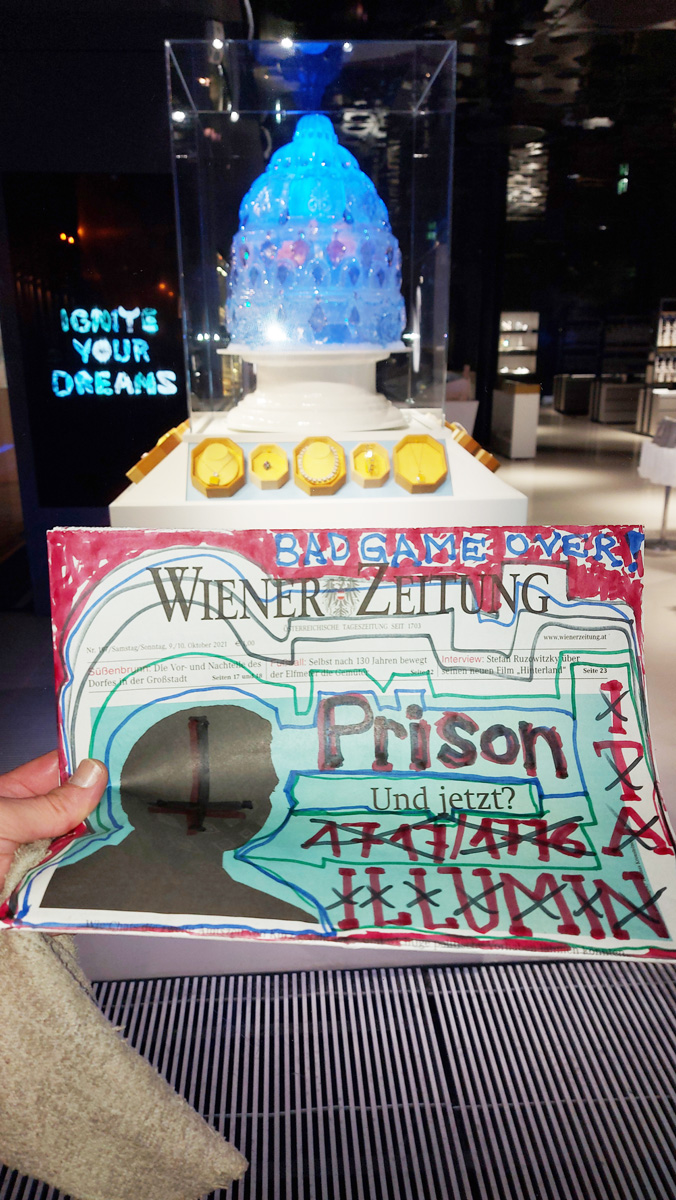 IGNITE
YOUR
DREAMS
BAD GAME OVER!
WIENER ZEITUNG
ÖSTERREICHISCHE TAGESZEITUNG SEIT 1703
Samstag/Sonntag, 9./10. Oktober 2021
www.wienerzeitung.at
Die Vor- und Nachteile des
Dorfes in der Großstadt
Seiten 17 und 18
Selbst nach 130 Jahren bewegt
der Elfmeter die Gemüter
Interview: Stefan Ruzowitzky über
seinen neuen Film „Hinterland“
Seite 23
Prison
Und jetzt?
1717/1776
ILLUMIN
ITA